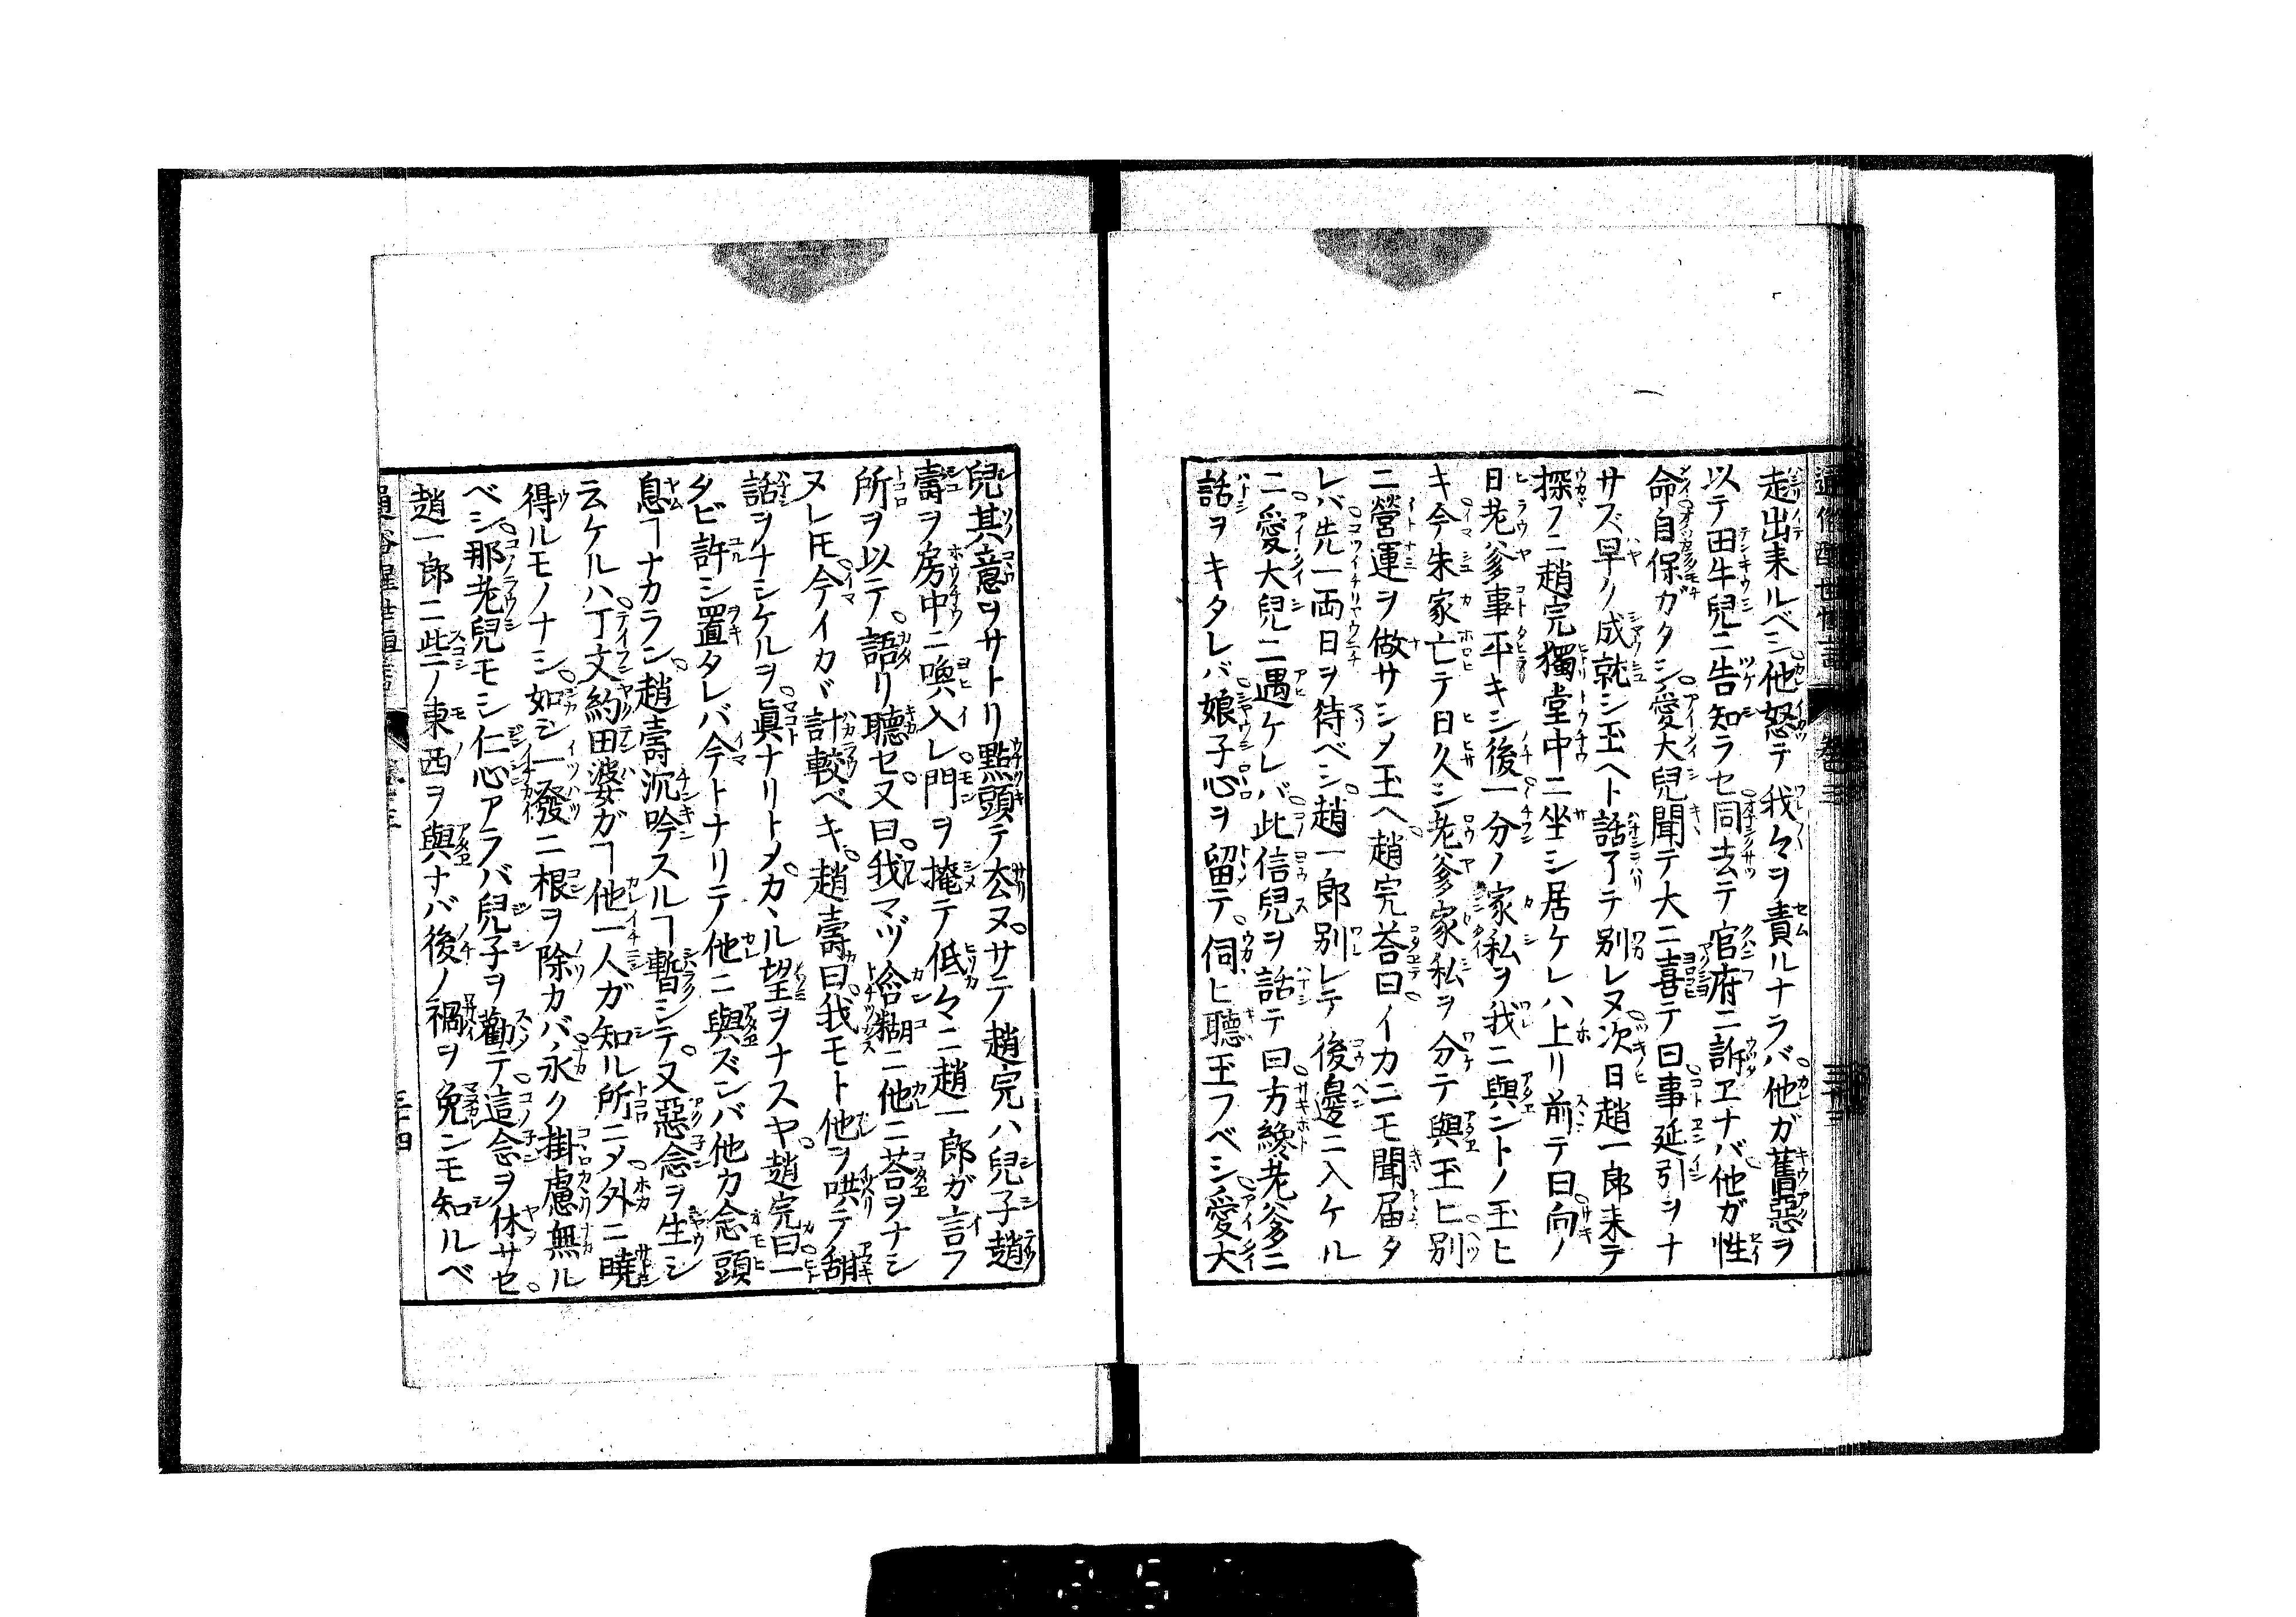 走出来ルベシ他怒テ我々ヲ責ルナラバ他ガ舊惡ヲ
以テ田牛兒ニ告知ラセ同去テ官府ニ訴ヱナバ他ガ性
命自保ガタシ愛大兒聞テ大ニ喜テ曰事延引ヲナ
サズ早ク成就シ玉ヘト話了テ別レヌ次日趙一郎来テ
探フニ趙完獨堂中ニ坐シ居ケレハ上リ前テ曰向ノ
日老爹事平キシ後一分ノ家私ヲ我ニ與ントノ玉ヒ
キ今朱家亡テ日久シ老爹家私ヲ分テ與玉ヒ別
ニ營運ヲ做サシメ玉ヘ趙完荅曰イカニモ聞届タ
レバ先一両日ヲ待ベシ趙一郎別レテ後邊ニ入ケル
ニ愛大兒ニ遇ケレバ此信兒ヲ話テ曰方纔老爹ニ
話ヲキタレバ娘子心ヲ留テ伺ヒ聽玉フベシ愛大
兒其意ヲサトリ點頭テ去ヌサテ趙完ハ兒子趙
壽ヲ房中ニ喚入レ門ヲ掩テ低々ニ趙一郎ガ言フ
所ヲ以テ語リ聽セ又曰我マヅ含糊ニ他ニ荅ヲナシ
ヌレ𪜈今イカヾ計較ベキ趙壽曰我モト他ヲ哄テ胡
話ヲナシケルヲ眞ナリトメカヽル望ヲナスヤ趙完曰一
タビ許シ置タレバ今トナリテ他ニ與ズンバ他カ念頭
息ヿナカラン趙壽沉吟スルヿ暫シテ又惡念ヲ生シ
云ケルハ丁文約田婆ガヿ他一人ガ知ル所ニメ外ニ曉
得ルモノナシ如シ一發ニ根ヲ除カバ永ク掛慮無ル
ベシ那老兒モシ仁心アラバ兒子ヲ勸テ這念ヲ休サセ
趙一郎ニ些ノ東西ヲ與ナバ後ノ禍ヲ免ンモ知ルベ
卷三
三十四